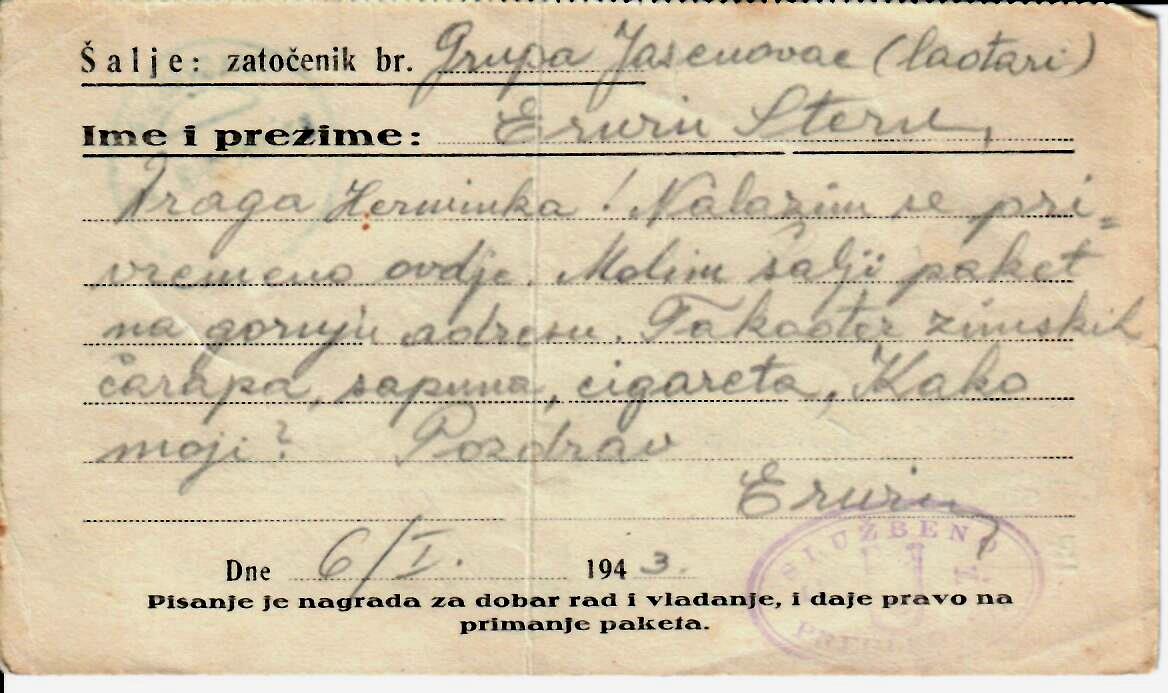 Šalje: zatočenik br. Grupa Jasenovac (laotari)
Ime i prezime: Erwin Stern,
Draga Herminka! Nalazim se pri=
vremeno ovdje. Molim šalji paket
na gornju adresu. Također zimskih
čarapa, sapuna, cigareta, Kako
moji? Pozdrav
Erwin
Dne 6/I. 1943.
Pisanje je nagrada za dobar rad i vladanje, i daje pravo na
primanje paketa.
SLUŽBENO
U